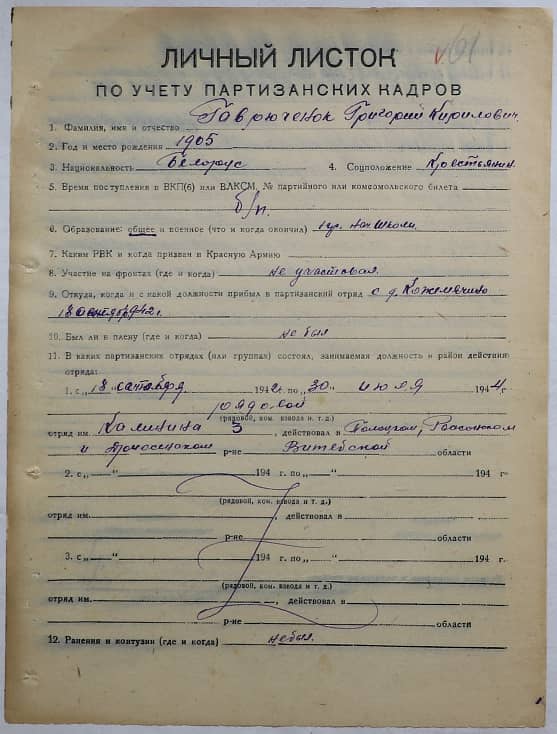 61
ЛИЧНЫЙ ЛИСТОК
ПО УЧЕТУ ПАРТИЗАНСКИХ КАДРОВ
1. Фамилия, имя и отчество Гаврюченок Григорий Кирилович
2. Год и место рождения 1905
3. Национальность Белорус 4. Соцположение Крестьянин
5. Время поступления в ВКП(б) или ВЛКСМ, № партийного или комсомольского билета
б/п.
6. Образование: общее и военное (что и когда окончил) 1 гр. нач школы
7. Каким РВК и когда призван в Красную Армию
8. Участие на фронтах (где и когда) не участвовал
9. Откуда, когда и с какой должности прибыл в партизанский отряд с д. Кожемячино
18 сентября 42 г.
10. Был ли в плену (где и когда) не был
11. В каких партизанских отрядах (или группах) состоял, занимаемая должность и район действия
отряда:
1. с „18“ сентября 1942 г. по „30“ июля 1944 г.
рядовой
(рядовой, ком. взвода и т. д.)
отряд им. Калинина 3, действовал в Полоцком, Россонском
и Дриссенском р-не Витебской области
2. с „ “ 194 г. по „ “ 194 г.
(рядовой, ком. взвода и т. д.)
отряд им. , действовал в
р-не области
3. с „ “ 194 г. по „ “ 194 г.
(рядовой, ком. взвода и т. д.)
отряд им. , действовал в
р-не области
12. Ранения и контузии (где и когда) не был.